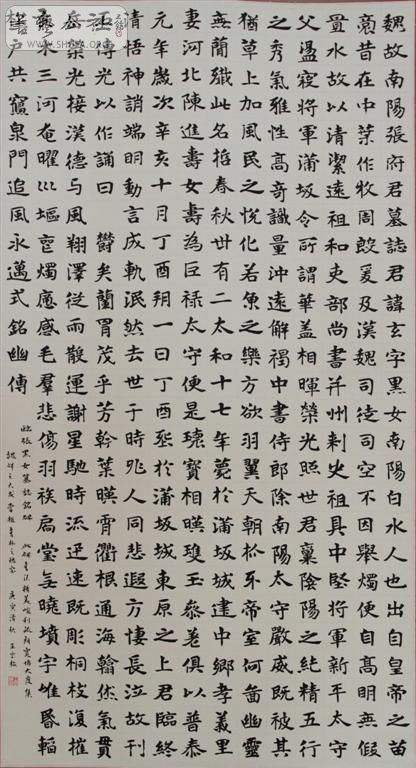 魏故南陽張府君墓誌君諱玄字黑女南陽白水人也出自皇帝之苗
裔昔在中葉作牧周殷爰及漢魏司徒司空不因舉燭便自高明無假
置水故以清潔遠祖和吏部尚書并州刺史祖具中堅將軍新平太守
父盪寇將軍蒲坂令所謂華蓋相暉榮光照世君稟陰陽之純精五行
之秀氣雅性高奇識量沖遠解褐中書侍郎除南陽太守嚴威既被其
猶草上加風民之悅化若魚之樂方欲羽翼天朝於帝室何啚幽靈
無蘭殲此名喆春秋卅有二太和十七年薨於蒲坂城中鄉孝義里
妻河北陳進壽女壽為巨祿太守便是瓌寶相暎瓊玉參差俱以普泰
元年歲次辛亥十月丁酉朔一日丁酉葬於蒲坂城東原之上君臨終
清悟神誚端明動言成軌泯然去世于時兆人同悲遐方悽長泣故刊
石傳光以作誦曰 鬱矣蘭胄茂乎芳幹葉暎霄衢根通海翰休氣貫
岳榮光接漢德与風翔澤從雨散運謝星馳時流迅速既彫桐枝復摧
良木三河奄曜巛塸喪燭痛感毛羣悲傷羽族扃堂無曉墳宇唯昏輼
松戶共寢泉門追風永邁式銘幽傳
臨張黑女墓誌銘 此碑書法精美峻利故能寬博大度集
魏碑之大成 庚寅清秋 王